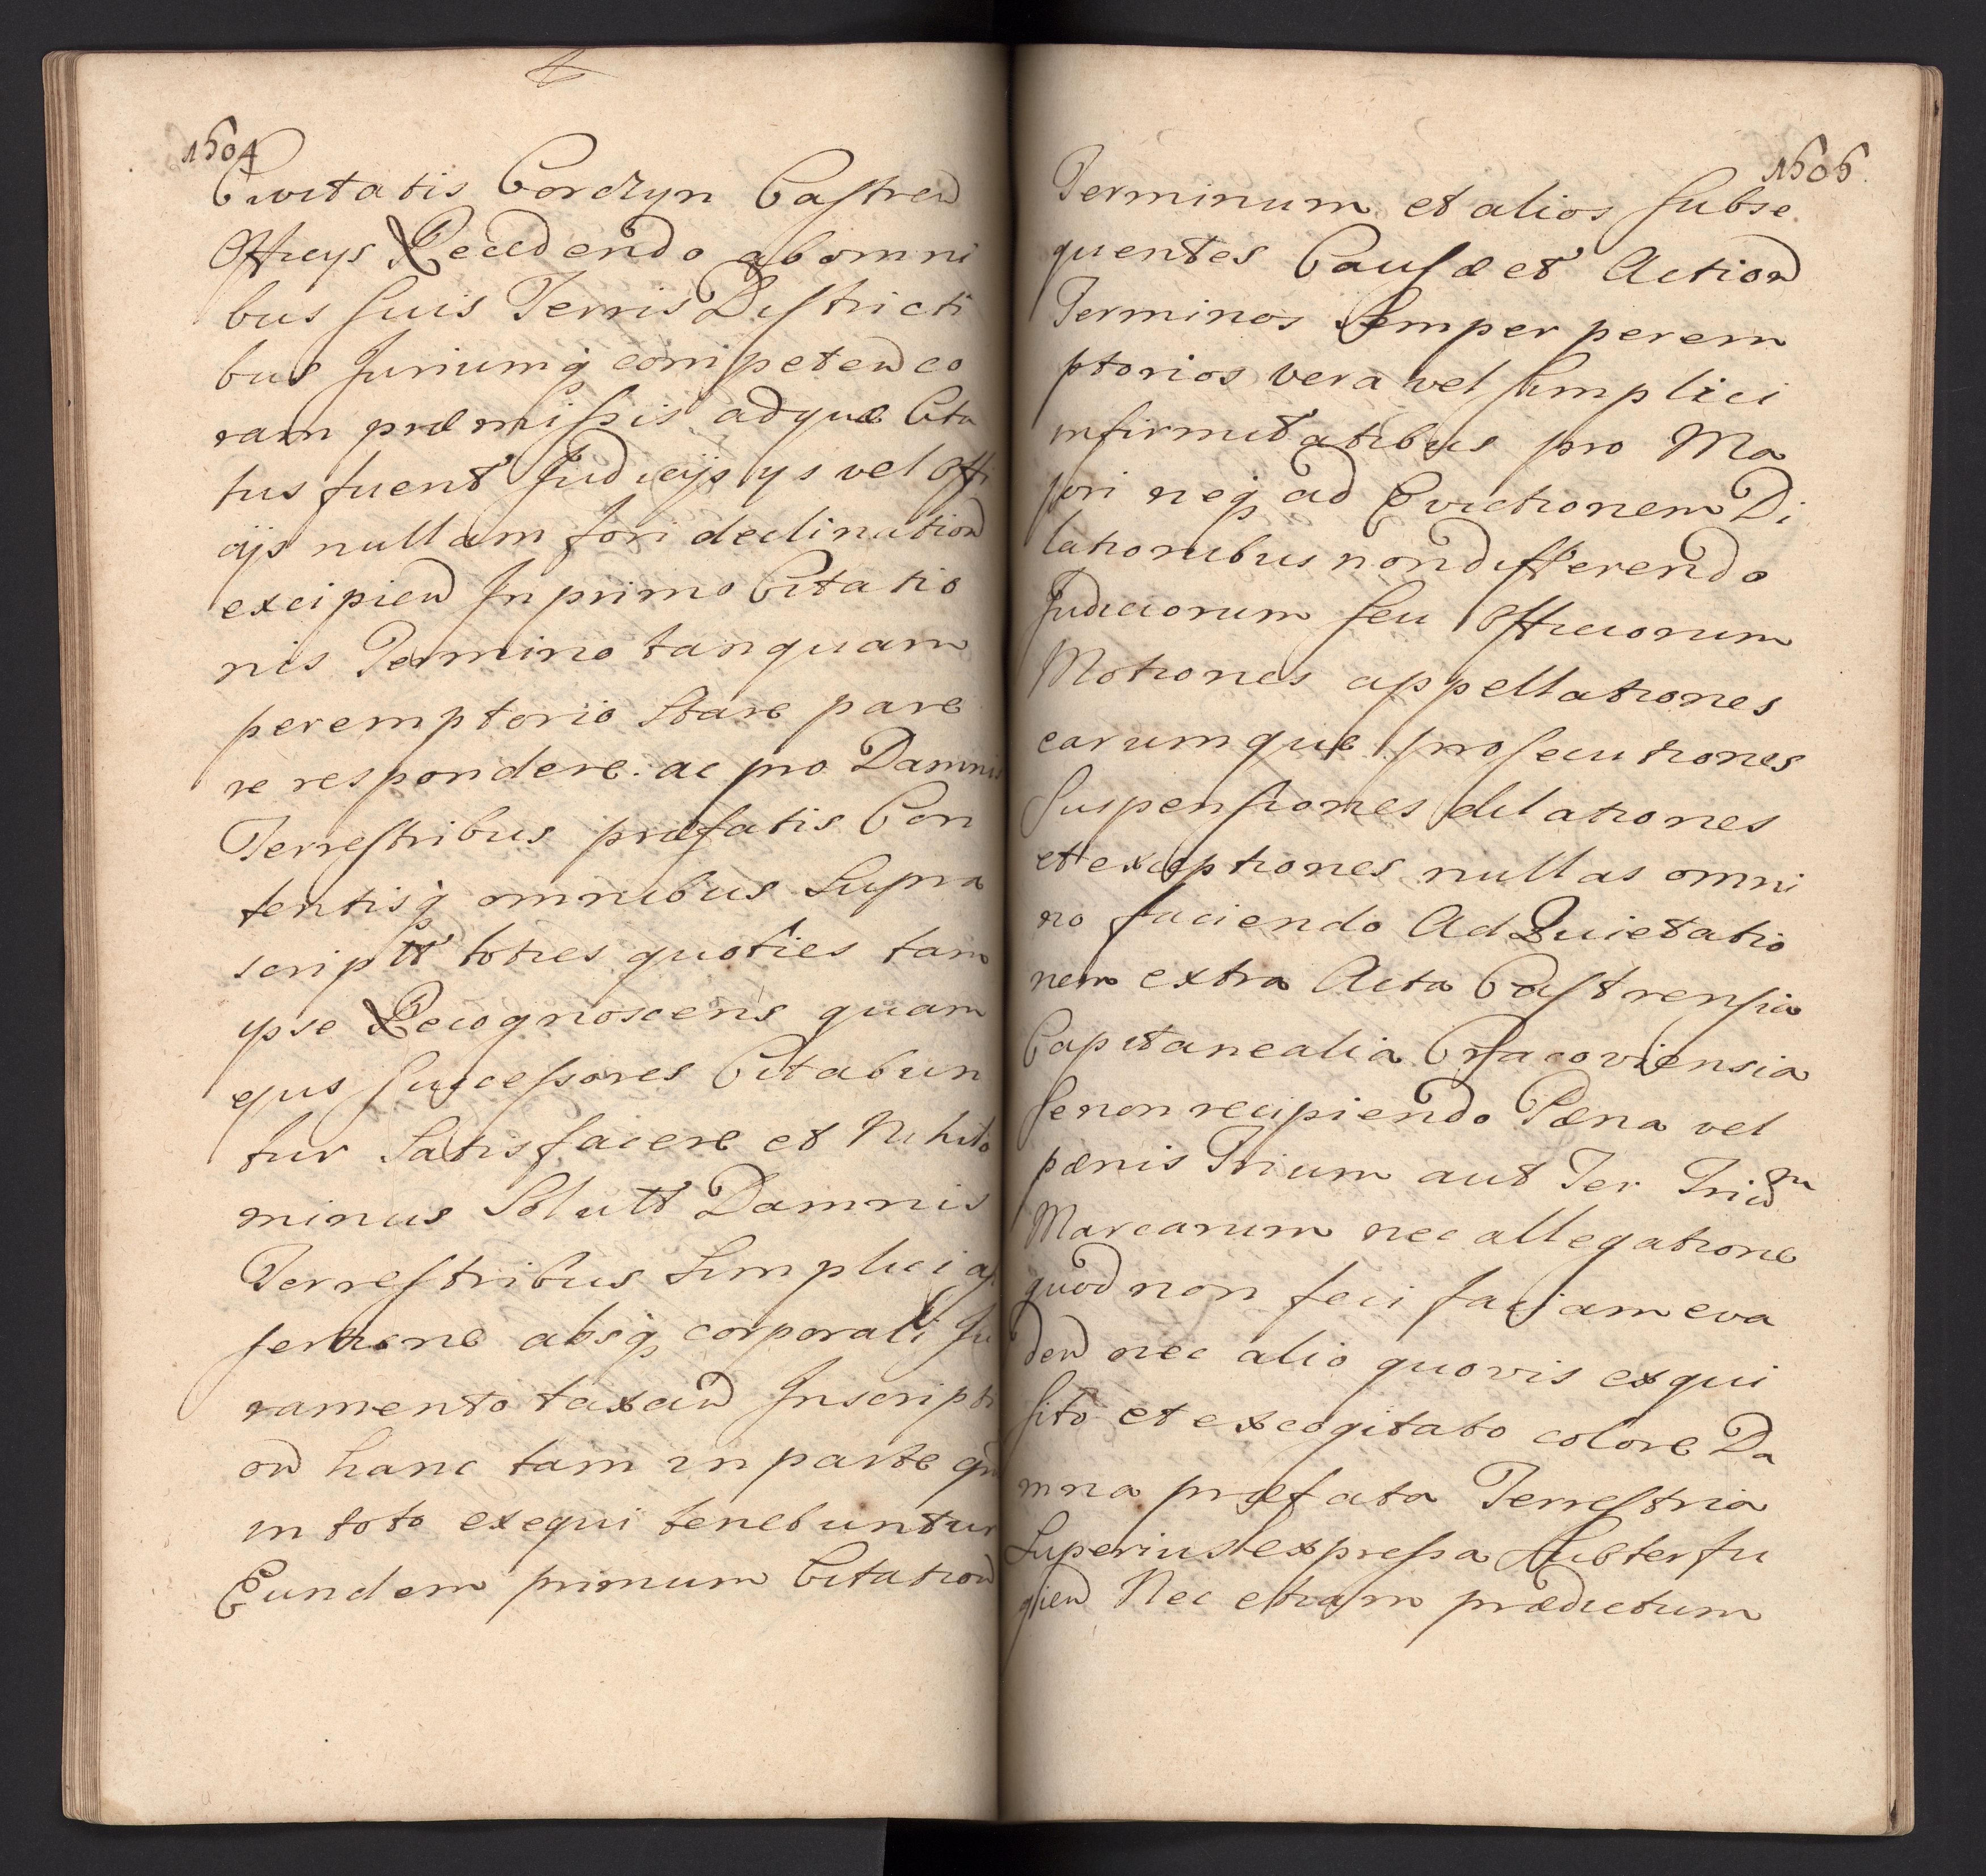 1504
Civitatis Corczyn Castren
Officys Recedendo ab omni
bus suis Terris Districti
bus Juriumq competen co
ram præmissis ad quæ Cita
tus fuerit Judicijs ys vel Offi
cijs nullam fori declination
excipien In primo Citatio
nis Termino tanquam
peremptorio Stare pare
re respondere: ac pro Damnis
Terrestribus præfatis Con
tentisq omnibus Supra
scriptt toties quoties tam
ipse Recognoscens quam
ejus Successores Citabun
tur Satisfacere et Nihilo
minus Solutt Damnis
Terrestribus Simplici as
sertione absq corporali Ju
ramento taxan Inscripti
on hanc tam in parte qm
in toto exequi tenebuntur
Eundem primum Citation
1505
Terminum et alios Subse
quentes Causæ et Action
Terminos Semper perem
ptorios vera vel simplici
infirmitatibus pro Ma
jori neq ad Evictionem Di
lationibus non differendo
Judiciorum seu Officiorum
Motiones appellationes
earumque prosecutiones
Suspensiones dilationes
et exceptiones nullas omni
no faciendo Ad Quietatio
nem extra Acta Castrensia
Capitanealia Cracoviensia
se non recipiendo Pæna vel
pænis Trium aut Ter Trium
Marcarum nec allegatione
quod non feci faciam eva
den nec alio quovis exqui
sito et excogitato colore Da
mna præfata Terrestria
Superius expressa Subterfu
gien Nec etiam prædictum